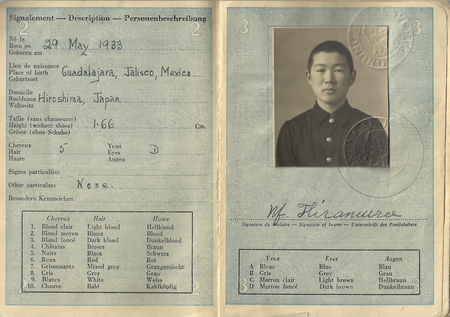 Signalement — Description — Personenbeschreibung
Né le
Born on 29 May 1933
Geboren am
Lieu de naissance
Place of birth Guadalajara, Jalisco, Mexico
Geburtsort
Domicile
Residence Hiroshima, Japan
Wohnsitz
Taille (sans chaussures)
Height (without shoes) 1.66 Cm.
Grösse (ohne Schuhe)
Cheveux Yeux
Hair 5 Eyes D
Haare Augen
Signes particuliers
Other particulars None.
Besondere Kennzeichen
Cheveux Hair Haare
1. Blond clair Light blond Hellblond
2. Blond moyen Blond Blond
3. Blond foncé Dark blond Dunkelblond
4. Châtains Brown Braun
5. Noirs Black Schwarz
6. Roux Red Rot
7. Grisonnants Mixed grey Graugemischt
8. Gris Grey Grau
9. Blancs White Weiss
10. Chauve Bald Kahlköpfig
2
2
3
3
3
Hiramura
Signature du titulaire — Signature of bearer — Unterschrift des Passinhabers
Yeux Eyes Augen
A Bleus Blue Blau
B Gris Grey Grau
C Marron clair Light brown Hellbraun
D Marron foncé Dark brown Dunkelbraun